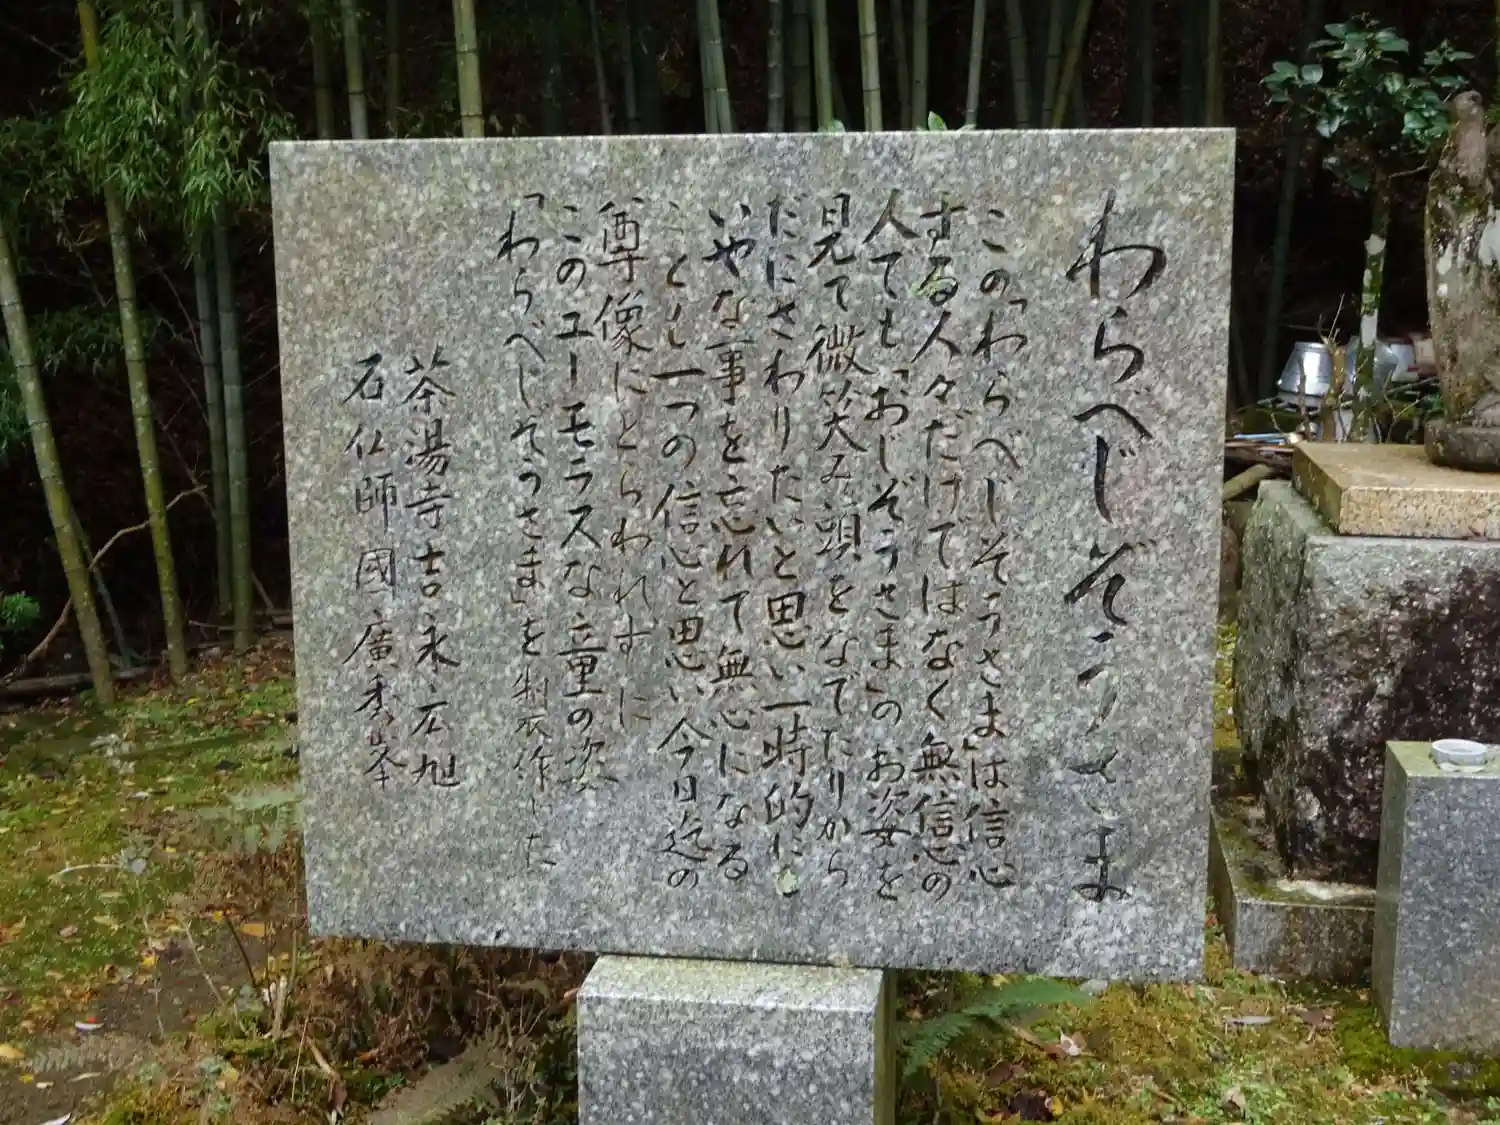 わらべじぞうさま
この「わらべじぞうさま」は信心
する人々だけではなく無信心の
人ても「おじぞうさま」のお姿を
見て微笑み頭をなでたりから
だにさわりたいと思い一時的にも
いやな事を忘れて無心になる
ことも一つの信心と思い今日迄の
尊像にとらわれずに
このユーモラスな童の姿
「わらべじぞうさま」を制作した
茶湯寺吉永広旭
石仏師國廣秀峯